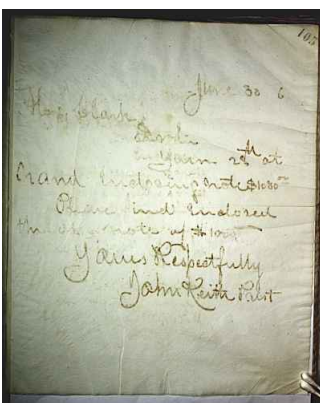 105
June 30 6
Clark
Yours 28th at
hand Enclosing note $1080
Please find Endorsed
note of $1000
Yours Respectfully
John Keith Prest